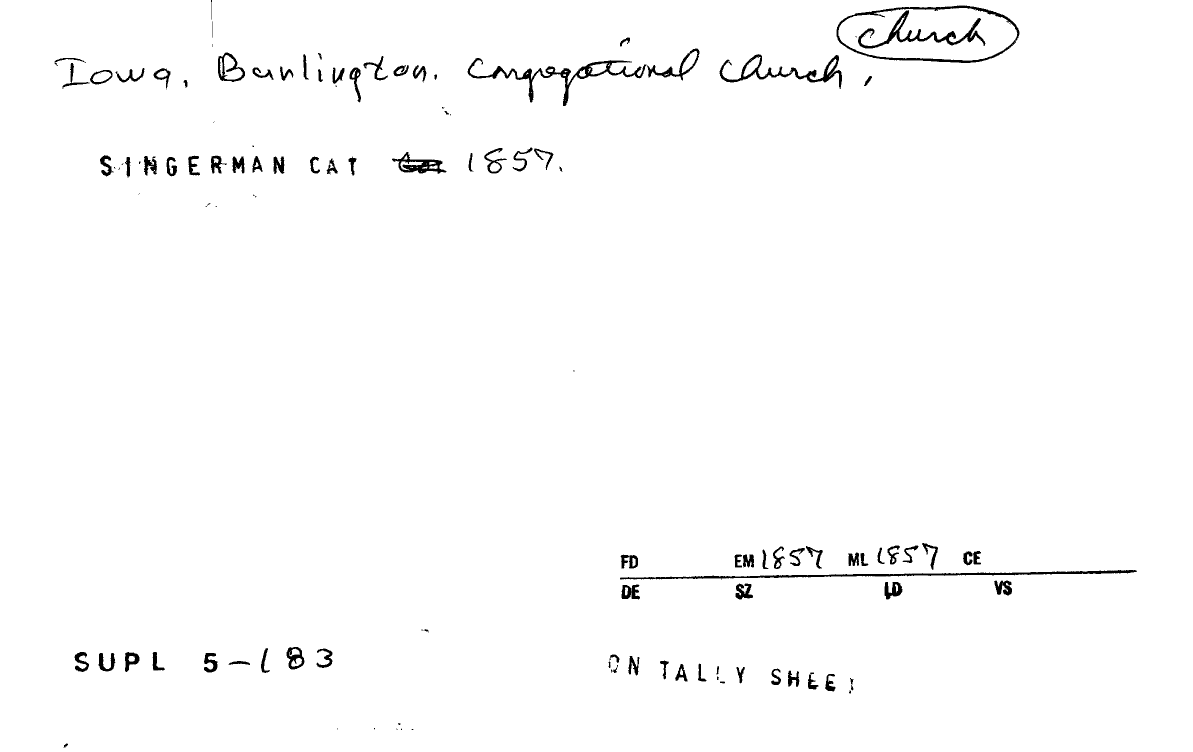 church
Iowa, Burlington. Congregational Church,
SINGERMAN CAT 1857.
FD EM 1857 ML 1857 CE
DE SZ LD VS
SUPL 5-183
ON TALLY SHEET